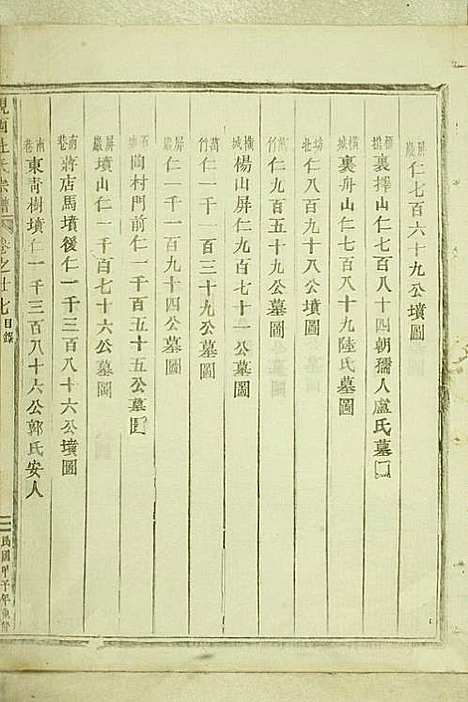 屏巖仁七百六十九公墳圖
橫城裏擇山仁七百八十四朝孺人盧氏墓圖
橫城裏舟山仁七百八十九陸氏墓圖
仁八百九十八公墳圖
萬竹仁九百五十九公墓圖
橫城傷山屏仁九百七十一公墓圖
萬竹仁一千一百三十九公墓圖
屏巖仁一千一百九十四公墓圖
陶村門前仁一千百五十五公墓圖
屏巖墳山仁一千百七十六公墓圖
南巷蔣店馬墳後仁一千三百八十六公墳圖
南巷東靑樹墳仁一千三百八十六公郭氏安人
杜氏宗譜 卷之廿七 目錄
民國甲子年重修